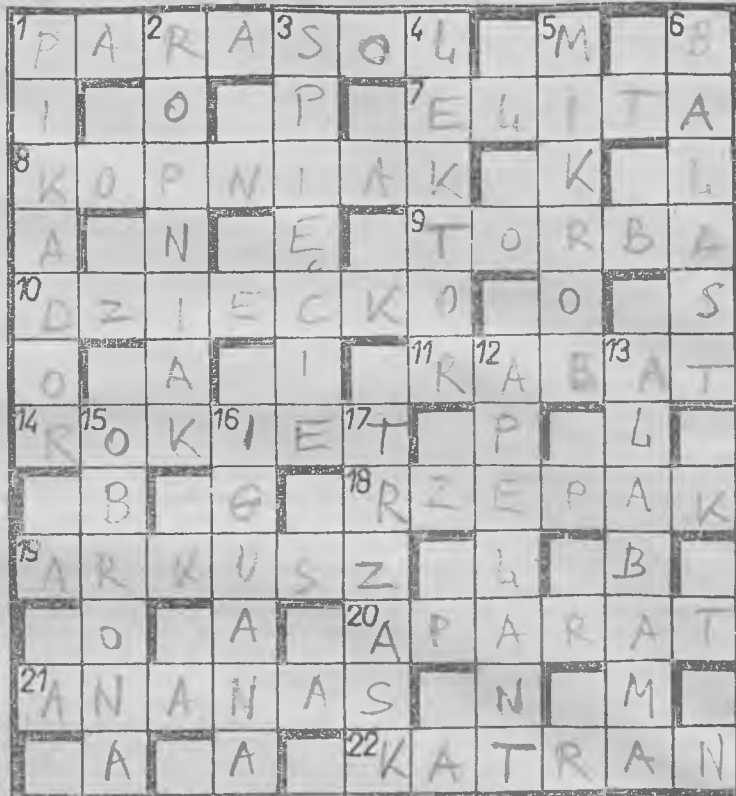 1 P A 2 R A 3 S O 4 Ł 5 M 6 B
I O P 7 E L I T A
8 K O P N I A K K L
A N E 9 T O R B A
10 D Z I E C K O O S
O A I 11 R 12 A B 13 A T
14 R 15 O K 16 I E 17 T P L
B G 18 R Z E P A K
19 A R K U S Z L B
O A 20 A P A R A T
21 A N A N A S N M
A A 22 K A T R A N